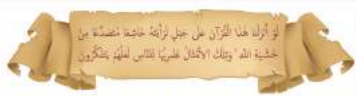 لَوْ أَنزَلْنَا هَذَا الْقُرْآنَ عَلَى جَبَلٍ لَرَأَيْتَهُ خَاشِعًا مُتَصَدِّعًا مِنْ
خَشْيَةِ اللَّهِ ۚ وَتِلْكَ الْأَمْثَالُ نَضْرِبُهَا لِلنَّاسِ لَعَلَّهُمْ يَتَفَكَّرُونَ